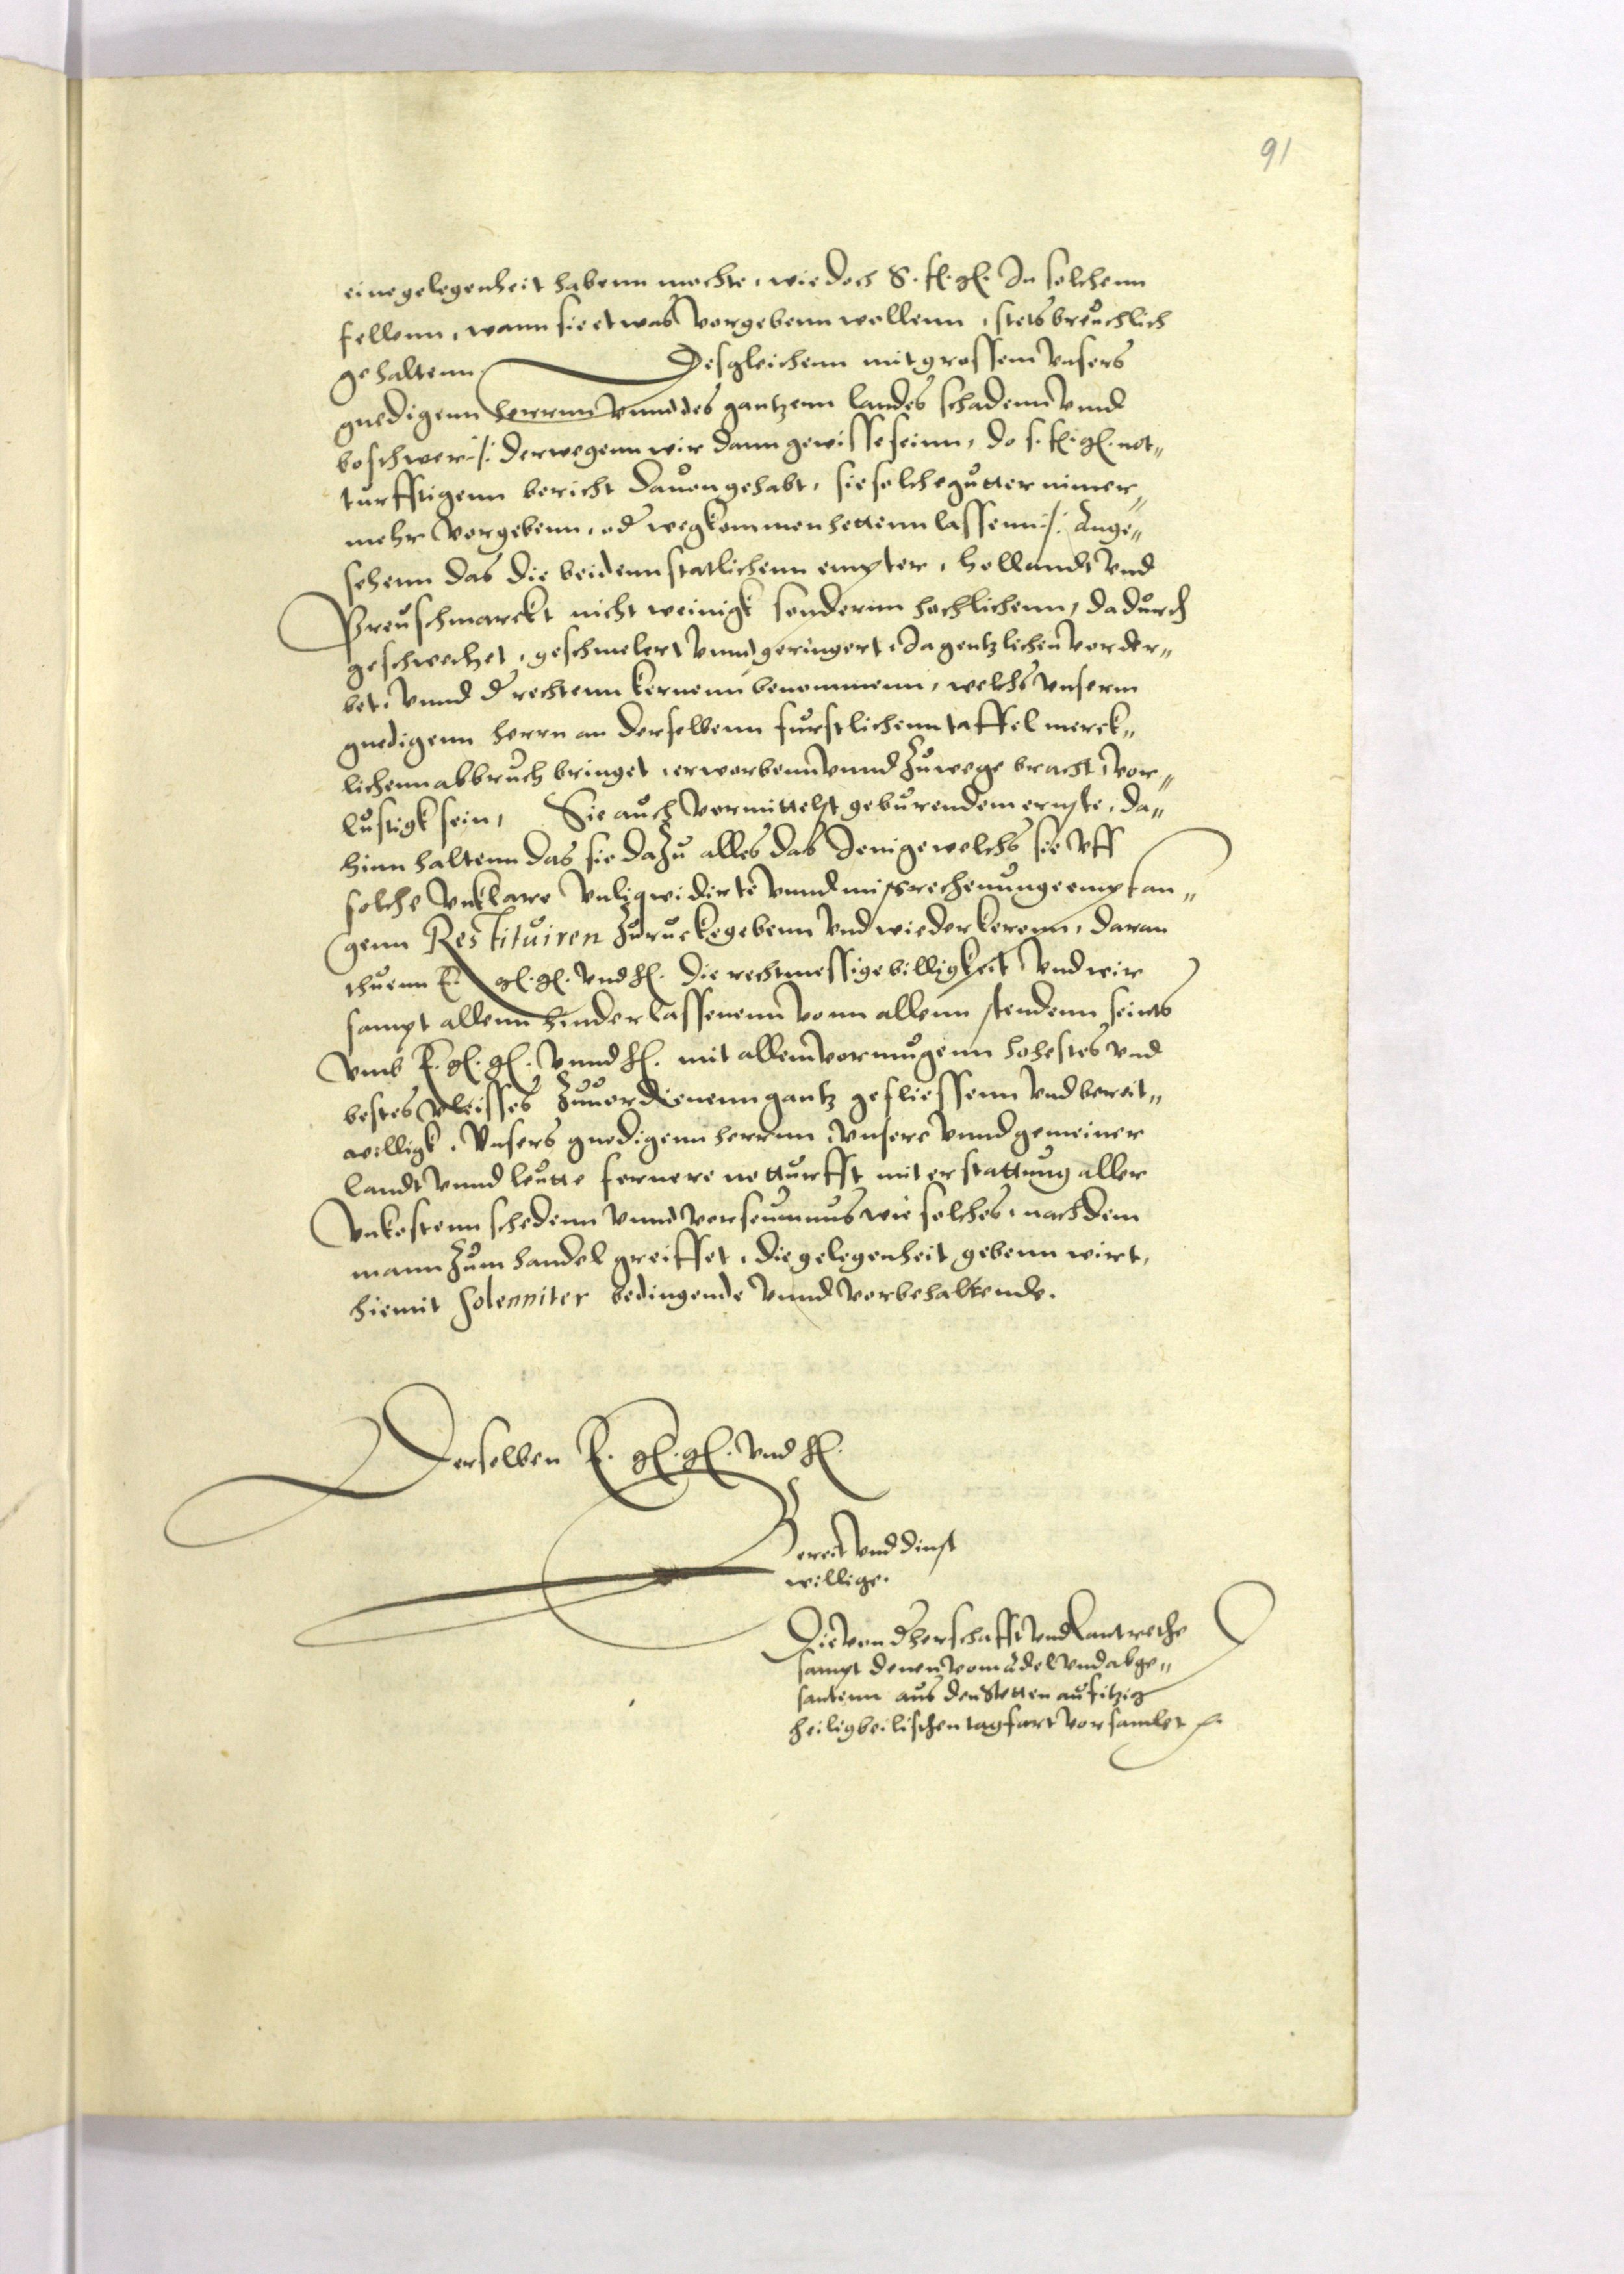 91
eine gelegenheit habenn mochte, wie doch S. f. g. In solchenn
fellenn, wann sie etwas vorgebenn wollenn, stets breuchlich
gehaltenn. Desgleichenn mit grossem vnsers
gnedigenn herrnn vnnd des gantzenn landes schadenn vnnd
beschwer /: derwegenn wir dann gewisse seinn, do s. f. g. not„
turfftigenn bericht dauon gehabt, sie solche gutter nimer„
mehr vorgebenn, od wegkommen hettenn lassenn :/ Ange„
sehenn das die beidenn statlichenn empter, hollandt vnd
Preuschmarckt nicht weinigk sondernn hochlichenn, dadurch
geschwechet, geschmelert vnnd geringert, Ja gentzlichen vorder„
bet, vnnd d rechtenn kernenn benommenn, welchs vnserm
gnedigenn herrn an derselbenn furstlichenn taffel merck„
lichenn abbruch bringet, erworbenn vnnd zuwege bracht, vor„
lustigk sein, Sie auch vermittelst geburendem ernste, da„
hinn haltenn das sie dazu alles das Jenige welchs sie vff
solche vnklare vnliqwidirte vnnd missrechenunge empfan„
genn Restituiren zuruckegebenn vnd wiederkerenn, daran
thuenn E. g. g. vnd h. die rechtmessige billigkeit vnd wir
sampt allenn hinderlassenenn vonn allenn stendenn seints
vmb E. g. g. vnnd h. mit allem vormugenn hohestes vnd
bestes vleisses zuuordienenn gantz gefliessenn vnd bereit„
willigk. Vnsers gnedigenn herrnn, vnsere vnnd gemeiner
landt vnnd leutte fernere notturfft mit erstattung aller
vnkostenn schedenn vnnd verseumnus wie solches, nachdem
mann zum handel greiffet, die gelegenheit gebenn wirt,
hiemit solenniter bedingende vnnd vorbehaltende.
Derselben E. g. g. vnd h.
Bereit vnd dinst
willige.
Die von d herschafft vnd Lantrethe
sampt denen vom adel vnd abge„
santenn aus den Stetten auf itzig
heiligbeilischen tagfart vorsamlet